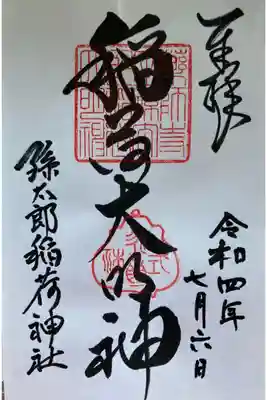 奉拝
令和四年
七月六日
稲荷大明神
孫太郎稲荷神社